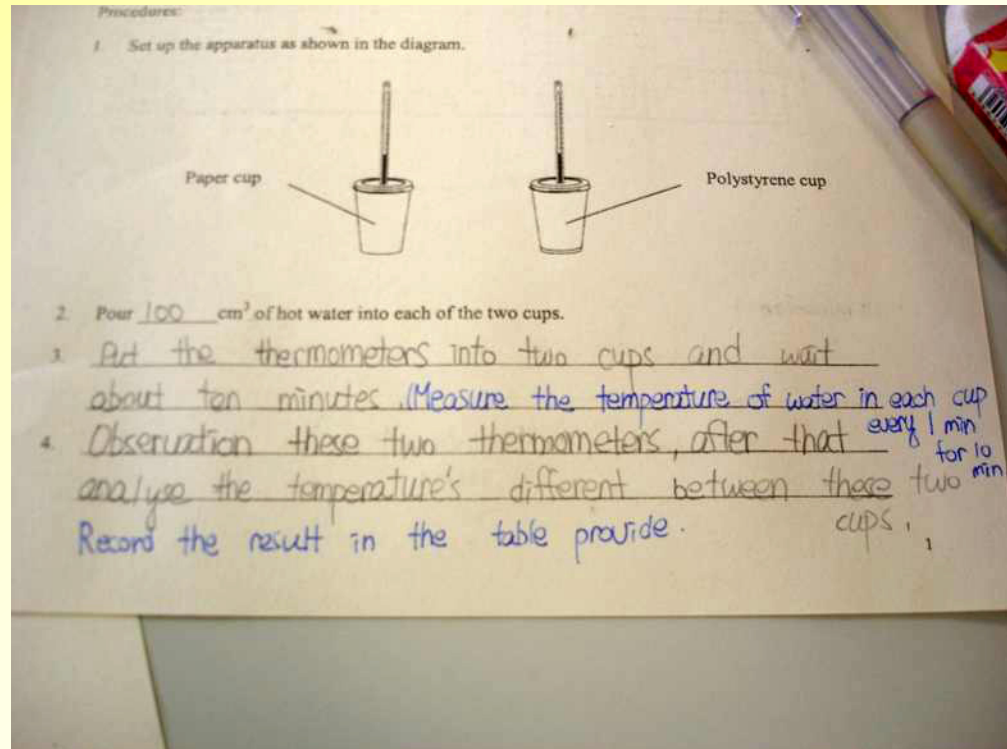 Procedures:
1 Set up the apparatus as shown in the diagram.
Paper cup
Polystyrene cup
2. Pour 100 cm³ of hot water into each of the two cups.
3. Put the thermometers into two cups and wait
about ten minutes. (Measure the temperature of water in each cup
every 1 min
for 10
min
4. Observation these two thermometers, after that
analyse the temperature's different between these two
cups.
Record the result in the table provide.
1